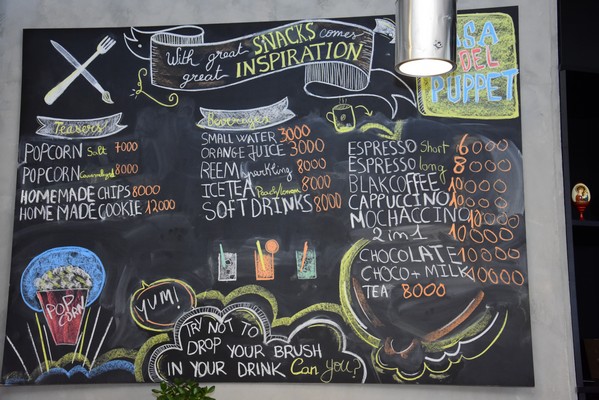 With great SNACKS comes
great INSPIRATION
SSA
DEL
PUPPET
Teasers
POPCORN Salt 7000
POPCORN Caramelized 8000
HOMEMADE CHIPS 8000
HOME MADE COOKIE 12000
Beverages
SMALL WATER 3000
ORANGE JUICE 3000
REEM sparkling 8000
ICE TEA Peach/Lemon 8000
SOFT DRINKS 8000
ESPRESSO Short 6000
ESPRESSO long 8000
BLAKCOFFEE 10000
CAPPUCCINO 10000
MOCHACCINO 10000
2 in 1 10000
CHOCOLATE 10000
CHOCO + MILK 10000
TEA 8000
POP CORN
YUM!
TRY NOT TO
DROP YOUR BRUSH
IN YOUR DRINK Can you?